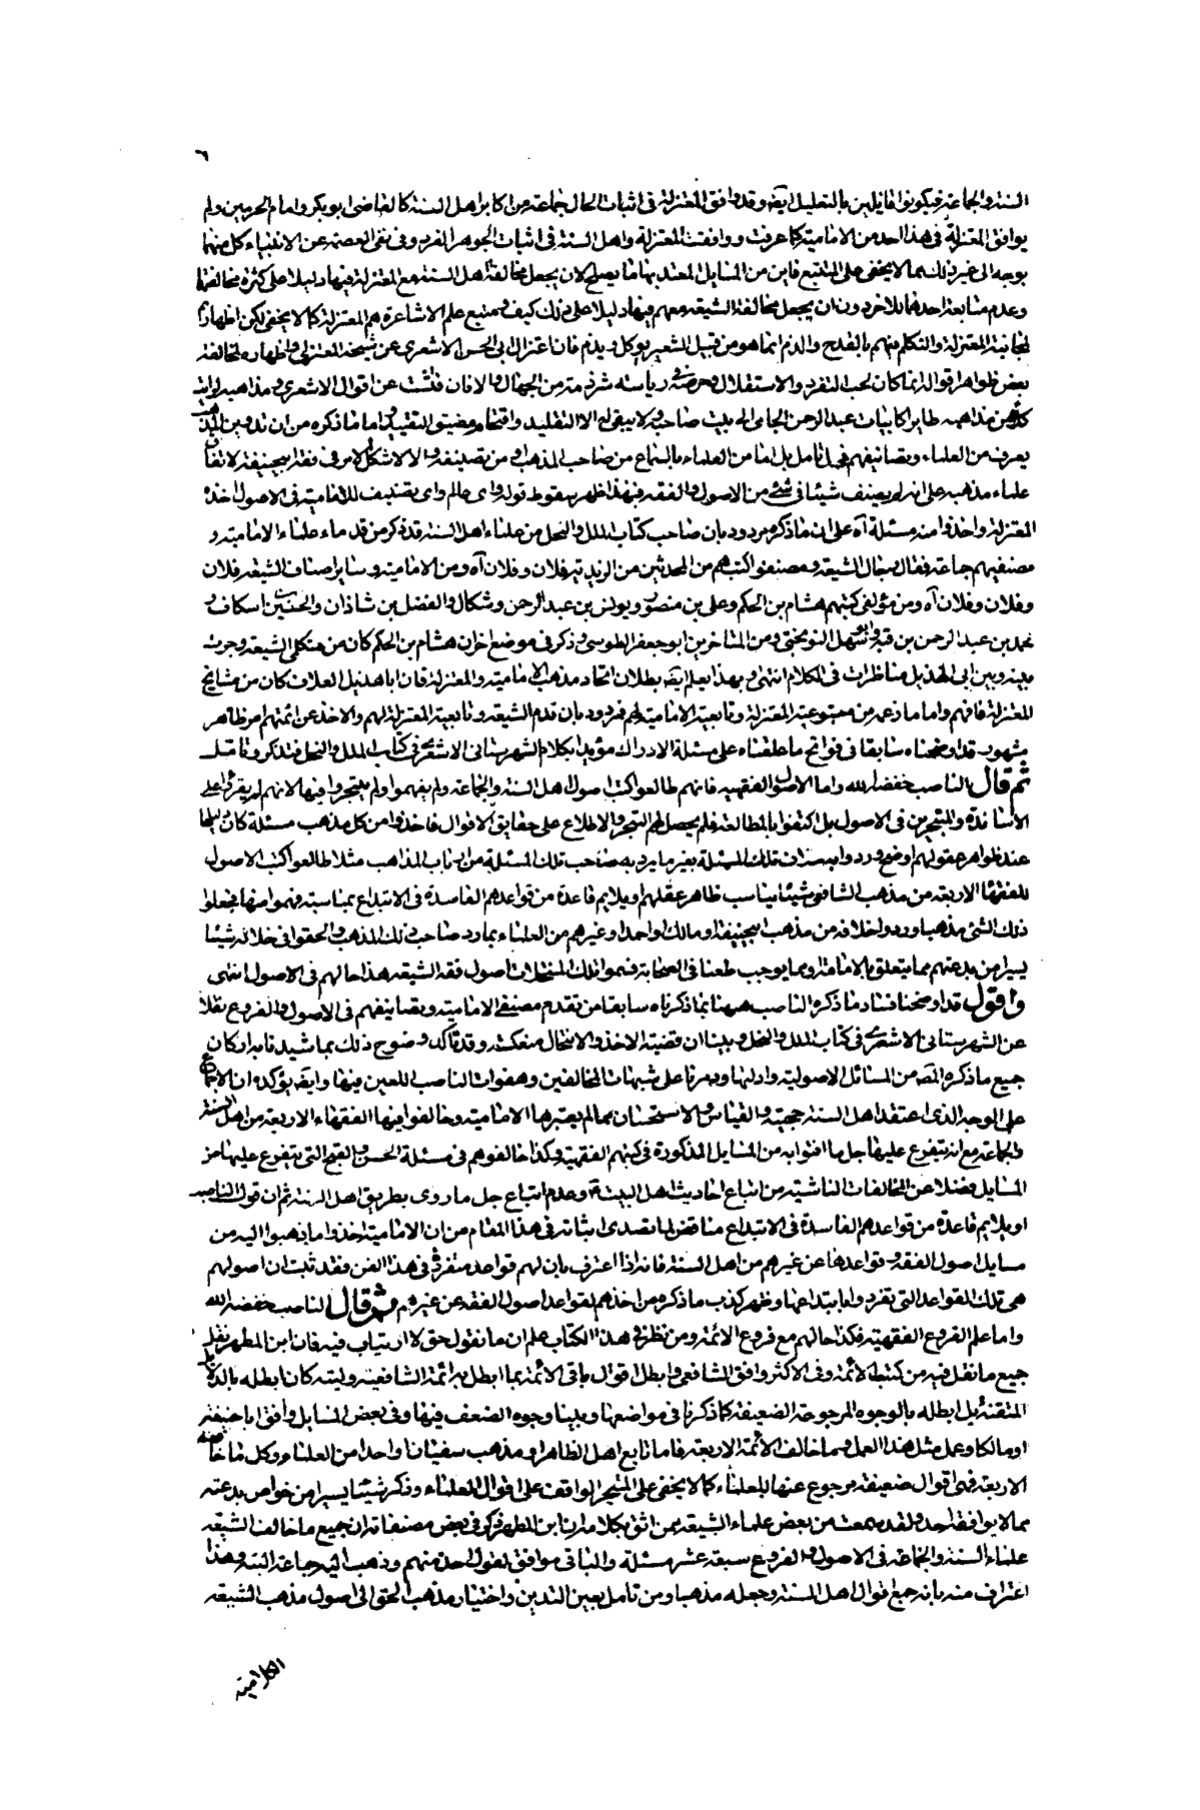 ٦
السنة والجماعة فيكونوا قائلين بالتعليل ايضا وقد وافق المعتزلة في اثبات الحال جماعة من اكابر اهل السنة كالقاضي ابو بكر وامام الحرمين ولم
يوافق المعتزلة في هذا احد من الامامية كما عرفت ووافقت المعتزلة واهل السنة في اثبات الجوهر الفرد وفي نفي العصمة عن الانبياء كل منهما
بوجه الى غير ذلك مما لا يخفى على المتتبع فاين من المسايل المعتد بها ما يصلح لان يجعل مخالفة اهل السنة مع المعتزلة فيها دليلا على كثرة مخالفتها
وعدم متابعة احدهما للاخر دون ان يجعل مخالفة الشيعة معهم فيها دليلا على ذلك كيف ومتبع علم الاشاعرة هم المعتزلة كما لا يخفى لكن اظهار
مجانبة المعتزلة والتكلم فيهم بالقدح والذم انما هو من قبيل الشعير يوكل ويذم فان اعتزال ابي الحسن الاشعري عن شيخه المعتزلي واظهاره لمخالفة
بعض ظواهر اقواله انما كان لحب التفرد والاستقلال وحرصه في رياسة شرذمة من الجهال والا فان فتشت عن اقوال الاشعري ومذاهبه لرايت
كل من مذاهبه طاير كابيات عبد الرحمن الجامي الى بيت صاحبه ولا يبقى له الا التقليد واقتحام مضيق التقييد واما ما ذكره من ان تدوين المذهب
يعرف من العلماء وتصانيفهم فمحل تامل بل اما من العلماء بالسماع من صاحب المذهب او من تصنيفه والا لاشكل الامر في فقه ابي حنيفة لاتفاق
علماء مذهبه على انه لم يصنف شيئا في شئ من الاصول والفقه فبهذا ظهر سقوط قوله واي عالم واي تصنيف للامامية في الاصول اخذه
المعتزلة واخذوا منه مسئلة آه على ان ما ذكره مردود بان صاحب كتاب الملل والنحل من علماء اهل السنة قد ذكر من قدماء علماء الامامية و
مصنفيهم جماعة فقال رجال الشيعة ومصنفوا كتبهم من المحدثين من الزيدية فلان وفلان آه ومن الامامية وساير اصناف الشيعة فلان
وفلان وفلان آه ومن مؤلفي كتبهم هشام بن الحكم وعلي بن منصور ويونس بن عبد الرحمن وشكال والفضل بن شاذان والحسين اسكاف و
محمد بن عبد الرحمن بن قبة وابو سهل النوبختي ومن المتاخرين ابو جعفر الطوسي وذكر في موضع اخر ان هشام بن الحكم كان من متكلمي الشيعة وجرت
بينه وبين ابي الهذيل مناظرات في الكلام انتهى وبهذا يعلم ايضا بطلان اتحاد مذهب الامامية والمعتزلة فان ابا هذيل العلاف كان من مشايخ
المعتزلة فافهم واما ما زعمه من متبوعية المعتزلة وتابعية الامامية لهم فمردود بان قدم الشيعة وتابعية المعتزلة لهم والاخذ عن ائمتهم امر ظاهر
مشهور قد اوضحناه سابقا في فواتح ما علقناه على مسئلة الادراك مؤيدا بكلام الشهرستاني الاشعري في كتاب الملل والنحل فتذكر وتامل
ثم قال الناصب خفضه الله واما الاصول الفقهية فانهم طالعوا كتب اصول اهل السنة والجماعة ولم يفهموا ولم يتبحروا فيها لانهم لم يقرؤا على
الاساتذة والمتبحرين في الاصول بل اكتفوا بالمطالعة فلم يحصل لهم التبحر والاطلاع على حقايق الاقوال فاخذوا من كل مذهب مسئلة كان دليلها
عند ظواهر عقولهم اوضح وردوا بعد ان تلك المسئلة بغير ما يرد به صاحب تلك المسئلة من ارباب المذاهب مثلا طالعوا كتب الاصول
للفقهاء الاربعة من مذهب الشافعي شيئا يناسب ظاهر عقلهم ويلايم قاعدة من قواعدهم الفاسدة في الابتداع بمناسبة فهموا منها فجعلوا
ذلك الشئ مذهبا وردوا خلافه من مذهب ابي حنيفة او مالك او احمد او غيرهم من العلماء بما رد صاحب ذلك المذهب والحقوا في خلاله شيئا
يسيرا من بدعتهم مما يتعلق بالامامة ومما يوجب طعنا في الصحابة فسموا تلك المنتحلات اصول فقه الشيعة هذا حالهم في الاصول انتهى
واقول قد اوضحنا فساد ما ذكره الناصب ههنا بما ذكرناه سابقا من تقدم مصنفي الامامية وتصانيفهم في الاصول والفروع نقلا
عن الشهرستاني الاشعري في كتاب الملل والنحل وبينا ان قضية الاخذ والانتحال منعكسة وقد تاكد وضوح ذلك بما شيدنا به اركان
جميع ما ذكره المص من المسائل الاصولية وادلتها ودمرنا على شبهات المخالفين وهفوات الناصب اللعين فيها وايضا يؤكده ان الاجماع
على الوجه الذي اعتقد اهل السنة حجيته والقياس والاستحسان مما لم يعتبرها الامامية وخالفوا فيها الفقهاء الاربعة من اهل السنة
والجماعة مع انه يتفرع عليها جل ما افتوا به من المسايل المذكورة في كتبهم الفقهية وكذا خالفوهم في مسئلة الحسن والقبح التي يتفرع عليها من
المسايل فضلا عن المخالفات الناشية من اتباع احاديث اهل البيت وعدم اتباع جل ما روى بطريق اهل السنة ثم ان قول الناصب
او يلايم قاعدة من قواعدهم الفاسدة في الابتداع مناقض لما تصدى اثباته في هذا المقام من ان الامامية اخذوا ما ذهبوا اليه من
مسايل اصول الفقه وقواعدها عن غيرهم من اهل السنة فانه اذا اعترف بان لهم قواعد متفردة في هذا الفن فقد ثبت ان اصولهم
هي تلك القواعد التي تفردوا بابتداعها وظهر كذب ما ذكره من اخذهم لقواعد اصول الفقه عن غيرهم ثم قال الناصب خفضه الله
واما علم الفروع الفقهية فكذا حالهم مع فروع الائمة ومن نظر في هذا الكتاب علم ان ما نقول حق لا ارتياب فيه فان ابن المطهر نقل
جميع ما نقل فيه من كتب الائمة وفي الاكثر وافق الشافعي وابطل اقوال باقي الائمة بما ابطل به ائمة الشافعية وليته كان ابطله بالدلائل
المتقنة بل ابطله بالوجوه المرجوحة الضعيفة كما ذكرنا في مواضعها وبينا وجوه الضعف فيها وفي بعض المسايل وافق ابا حنيفة
او مالكا وعمل مثل هذا العمل وما خالف الائمة الاربعة فاما تابع اهل الظاهر او مذهب سفيان او احدا من العلماء وكل ما خالفه
الاربعة فهي اقوال ضعيفة مرجوع عنها للعلماء كما لا يخفى على المتبحر الواقف على اقوال العلماء وذكر شيئا يسيرا من خواص بدعته
مما لا يوافقه احد ولقد سمعت من بعض علماء الشيعة ممن اثق بكلامه ان ابن المطهر ذكر في بعض مصنفاته ان جميع ما خالف الشيعة
علماء السنة والجماعة في الاصول والفروع سبعة عشر مسئلة والباقي موافق لقول احد منهم وذهب اليه جماعة البتة وهذا
اعتراف منه بانه جمع اقوال اهل السنة وجعله مذهبا ومن تامل بعين التدين واختيار مذهب الحق الى اصول مذهب الشيعة
الكلامية